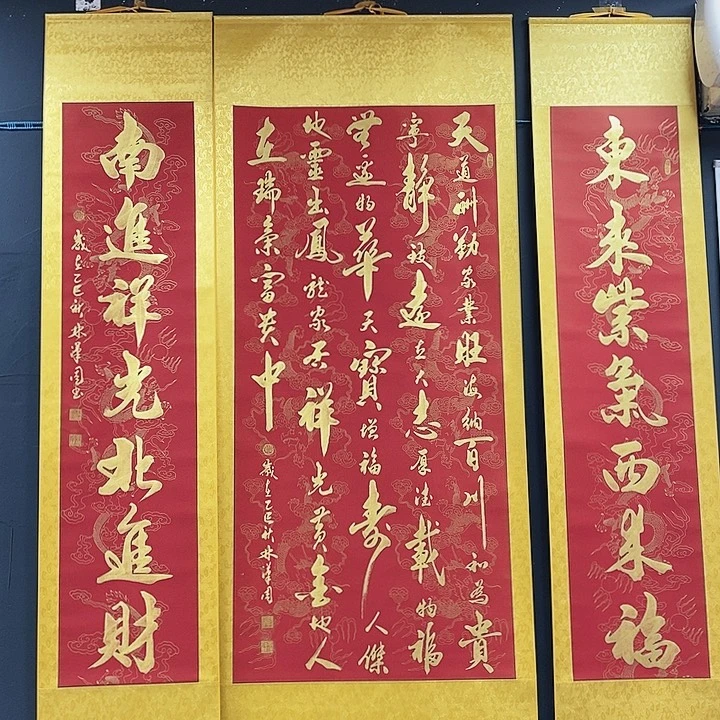 東來紫氣西來福
天道酬勤家業旺海納百川和為貴
寧靜致遠立大志厚德載物福
無邊物華天寶增福壽人傑
地靈出鳳龍家居祥光黃金地人
在瑞氣富貴中
歲在乙巳秋林
南進祥光北進財
歲在乙巳秋林